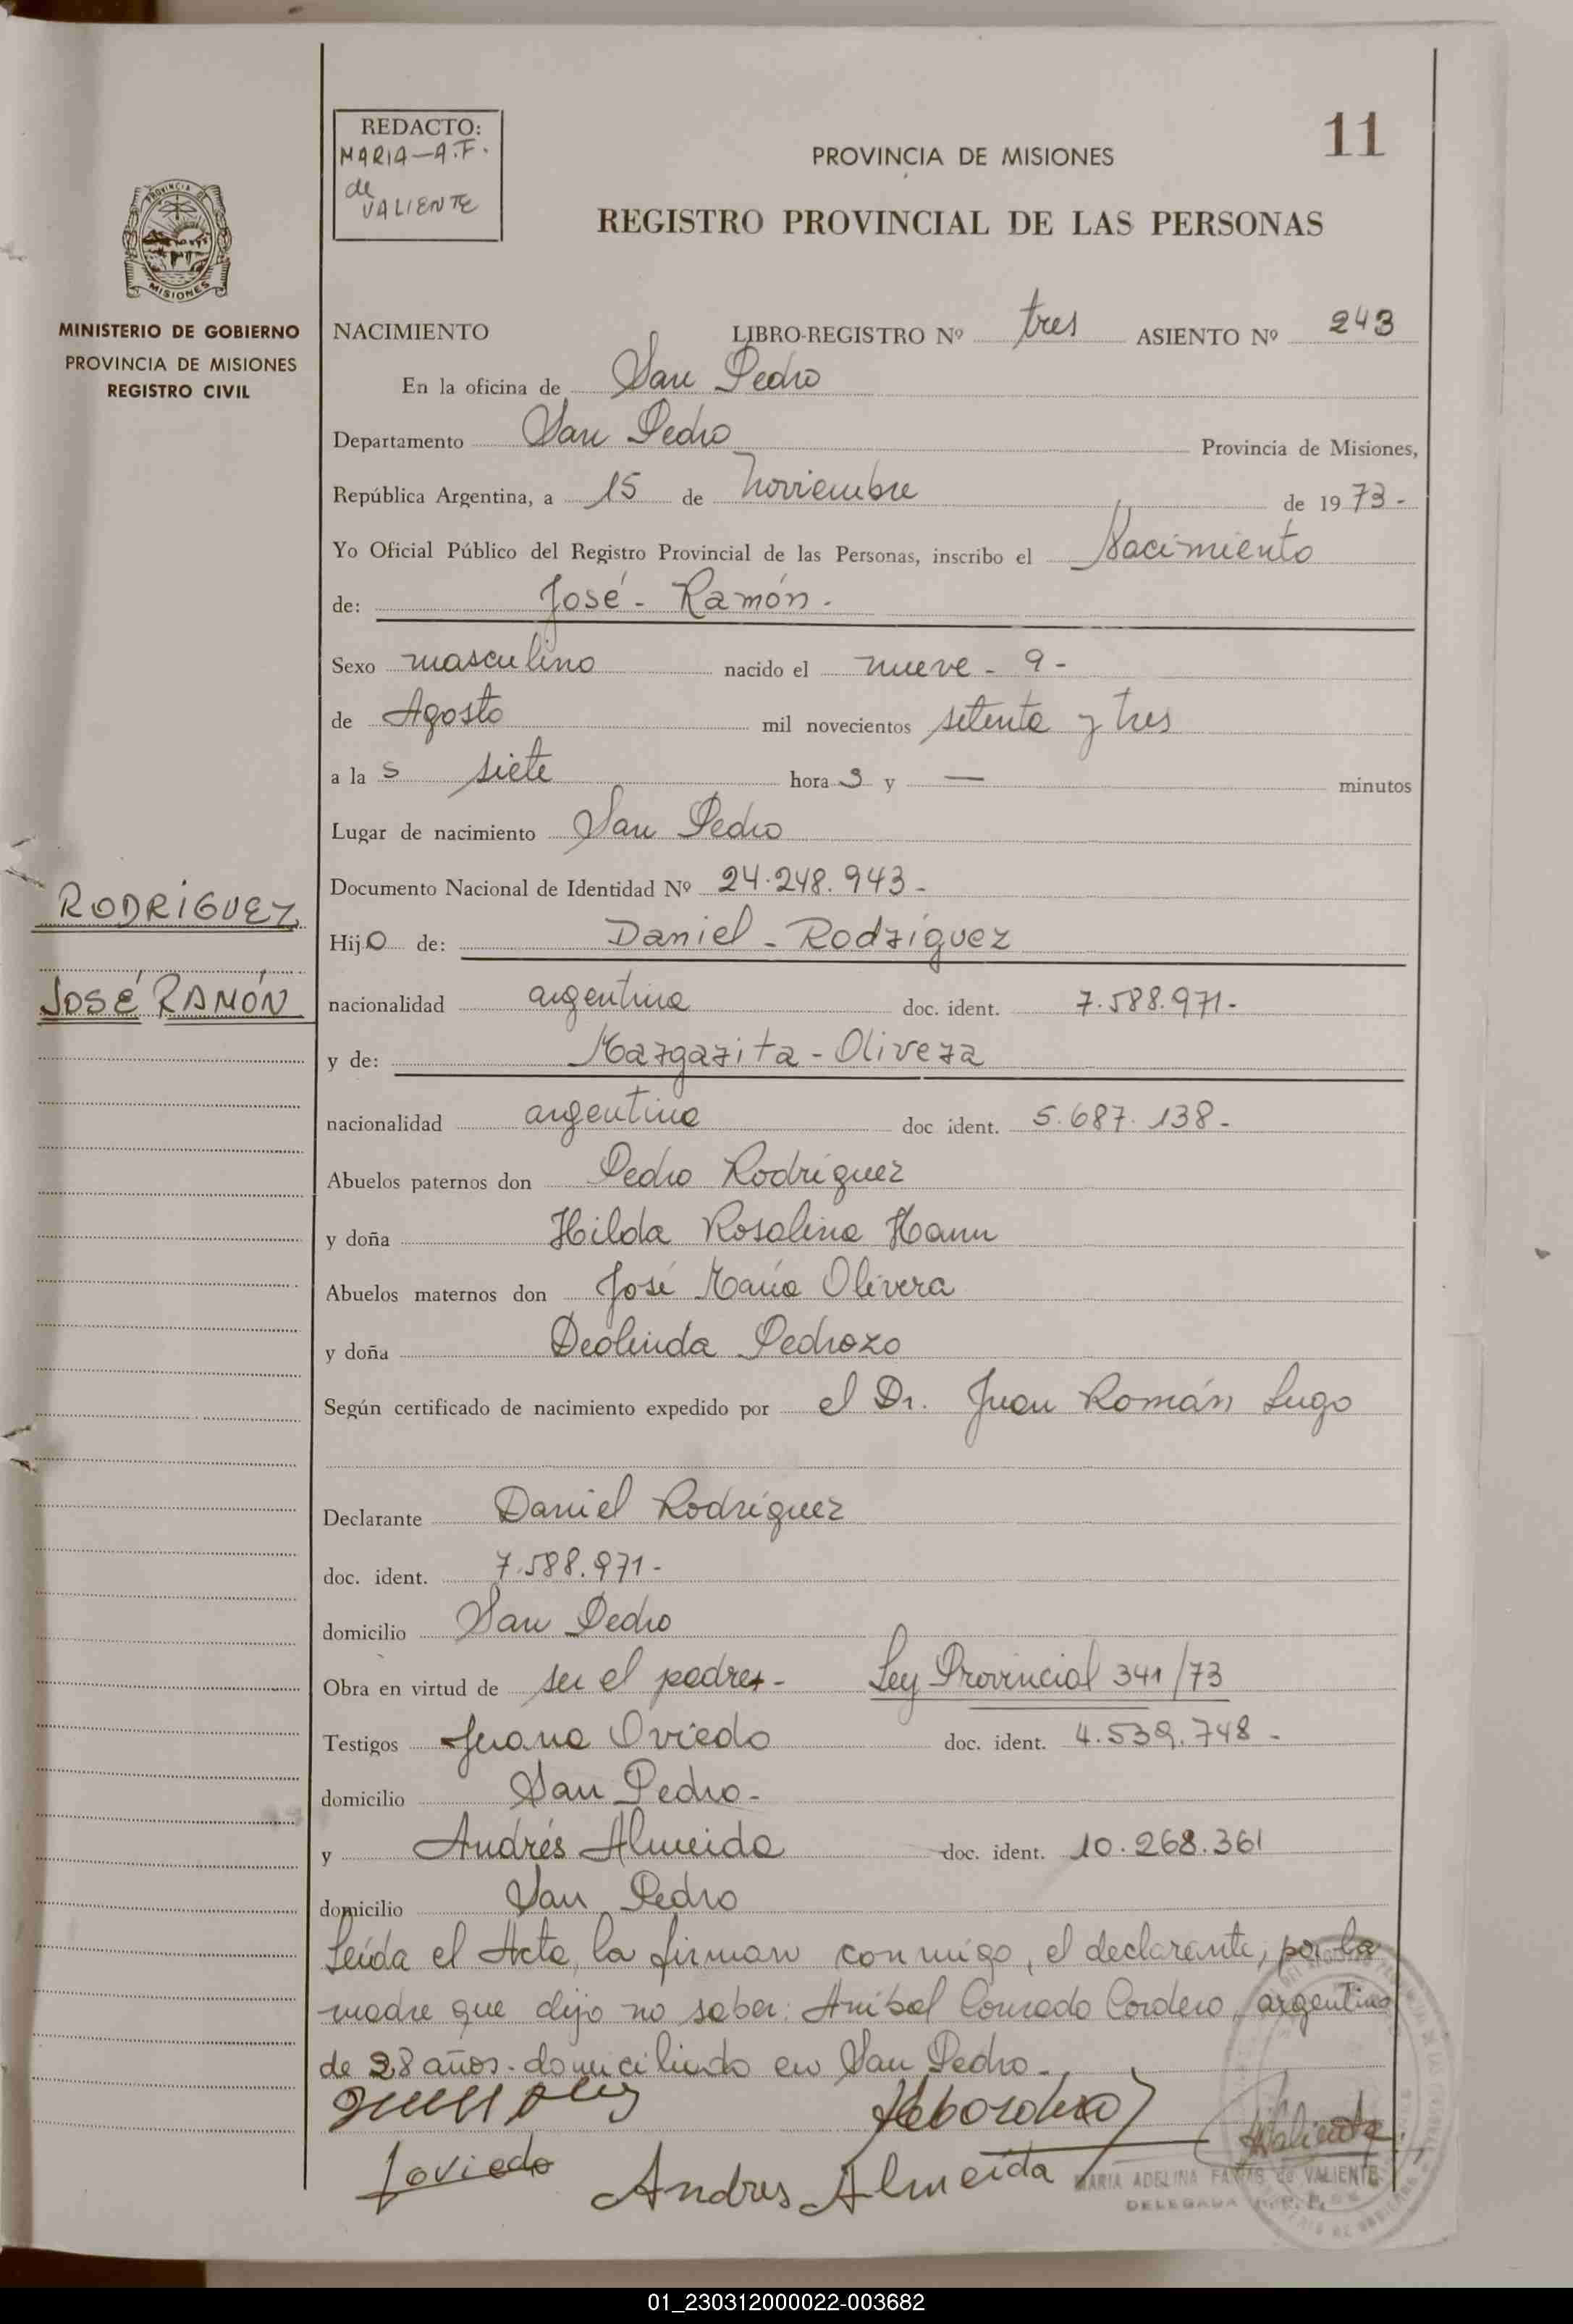 11
REDACTO:
MARIA-A.F.
de
VALIENTE
PROVINCIA DE MISIONES
REGISTRO PROVINCIAL DE LAS PERSONAS
PROVINCIA DE
MISIONES
MINISTERIO DE GOBIERNO
PROVINCIA DE MISIONES
REGISTRO CIVIL
NACIMIENTO LIBRO-REGISTRO Nº tres ASIENTO Nº 243
En la oficina de San Pedro
Departamento San Pedro Provincia de Misiones,
República Argentina, a 15 de Noviembre de 1973-
Yo Oficial Público del Registro Provincial de las Personas, inscribo el Nacimiento
de: José - Ramón.
Sexo masculino nacido el nueve - 9 -
de Agosto mil novecientos setenta y tres
a la s siete hora s y — minutos
Lugar de nacimiento San Pedro
Documento Nacional de Identidad Nº 24.248.943-
RODRIGUEZ
JOSÉ RAMÓN
Hijo de: Daniel - Rodríguez
nacionalidad argentina doc. ident. 7.588.971-
y de: Margarita - Olivera
nacionalidad argentina doc ident. 5.687.138-
Abuelos paternos don Pedro Rodríguez
y doña Hilda Rosalina Hann
Abuelos maternos don José María Olivera
y doña Deolinda Pedrozo
Según certificado de nacimiento expedido por el Dr. Juan Román Lugo
Declarante Daniel Rodríguez
doc. ident. 7.588.971-
domicilio San Pedro
Obra en virtud de ser el padre - Ley Provincial 341/73
Testigos Juana Oviedo doc. ident. 4.539.748-
domicilio San Pedro-
y Andrés Almeida doc. ident. 10.268.361
domicilio San Pedro
Leída el Acta, la firman conmigo, el declarante, por la
madre que dijo no saber: Anibal Conrado Cordero, argentino
de 28 años. domiciliado en San Pedro-
J oviedo Andres Almeida
Valiente
MARIA ADELINA FARIAS de VALIENTE
DELEGADA R.P.P.
01_230312000022-003682